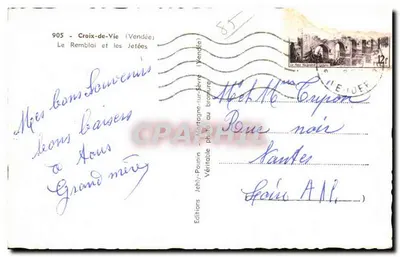 905 - Croix-de-Vie (Vendée)
Le Remblai et les Jetées
85
Mes bons Souvenirs
bons baisers
à tous
Grand mère
Editions Jehly-Poupin, Mortagne-sur-Sèvre (Vendée)
Véritable photo au bromure
12F
VENDEE
M et Mme
Nantes
Loire
Cartepostale